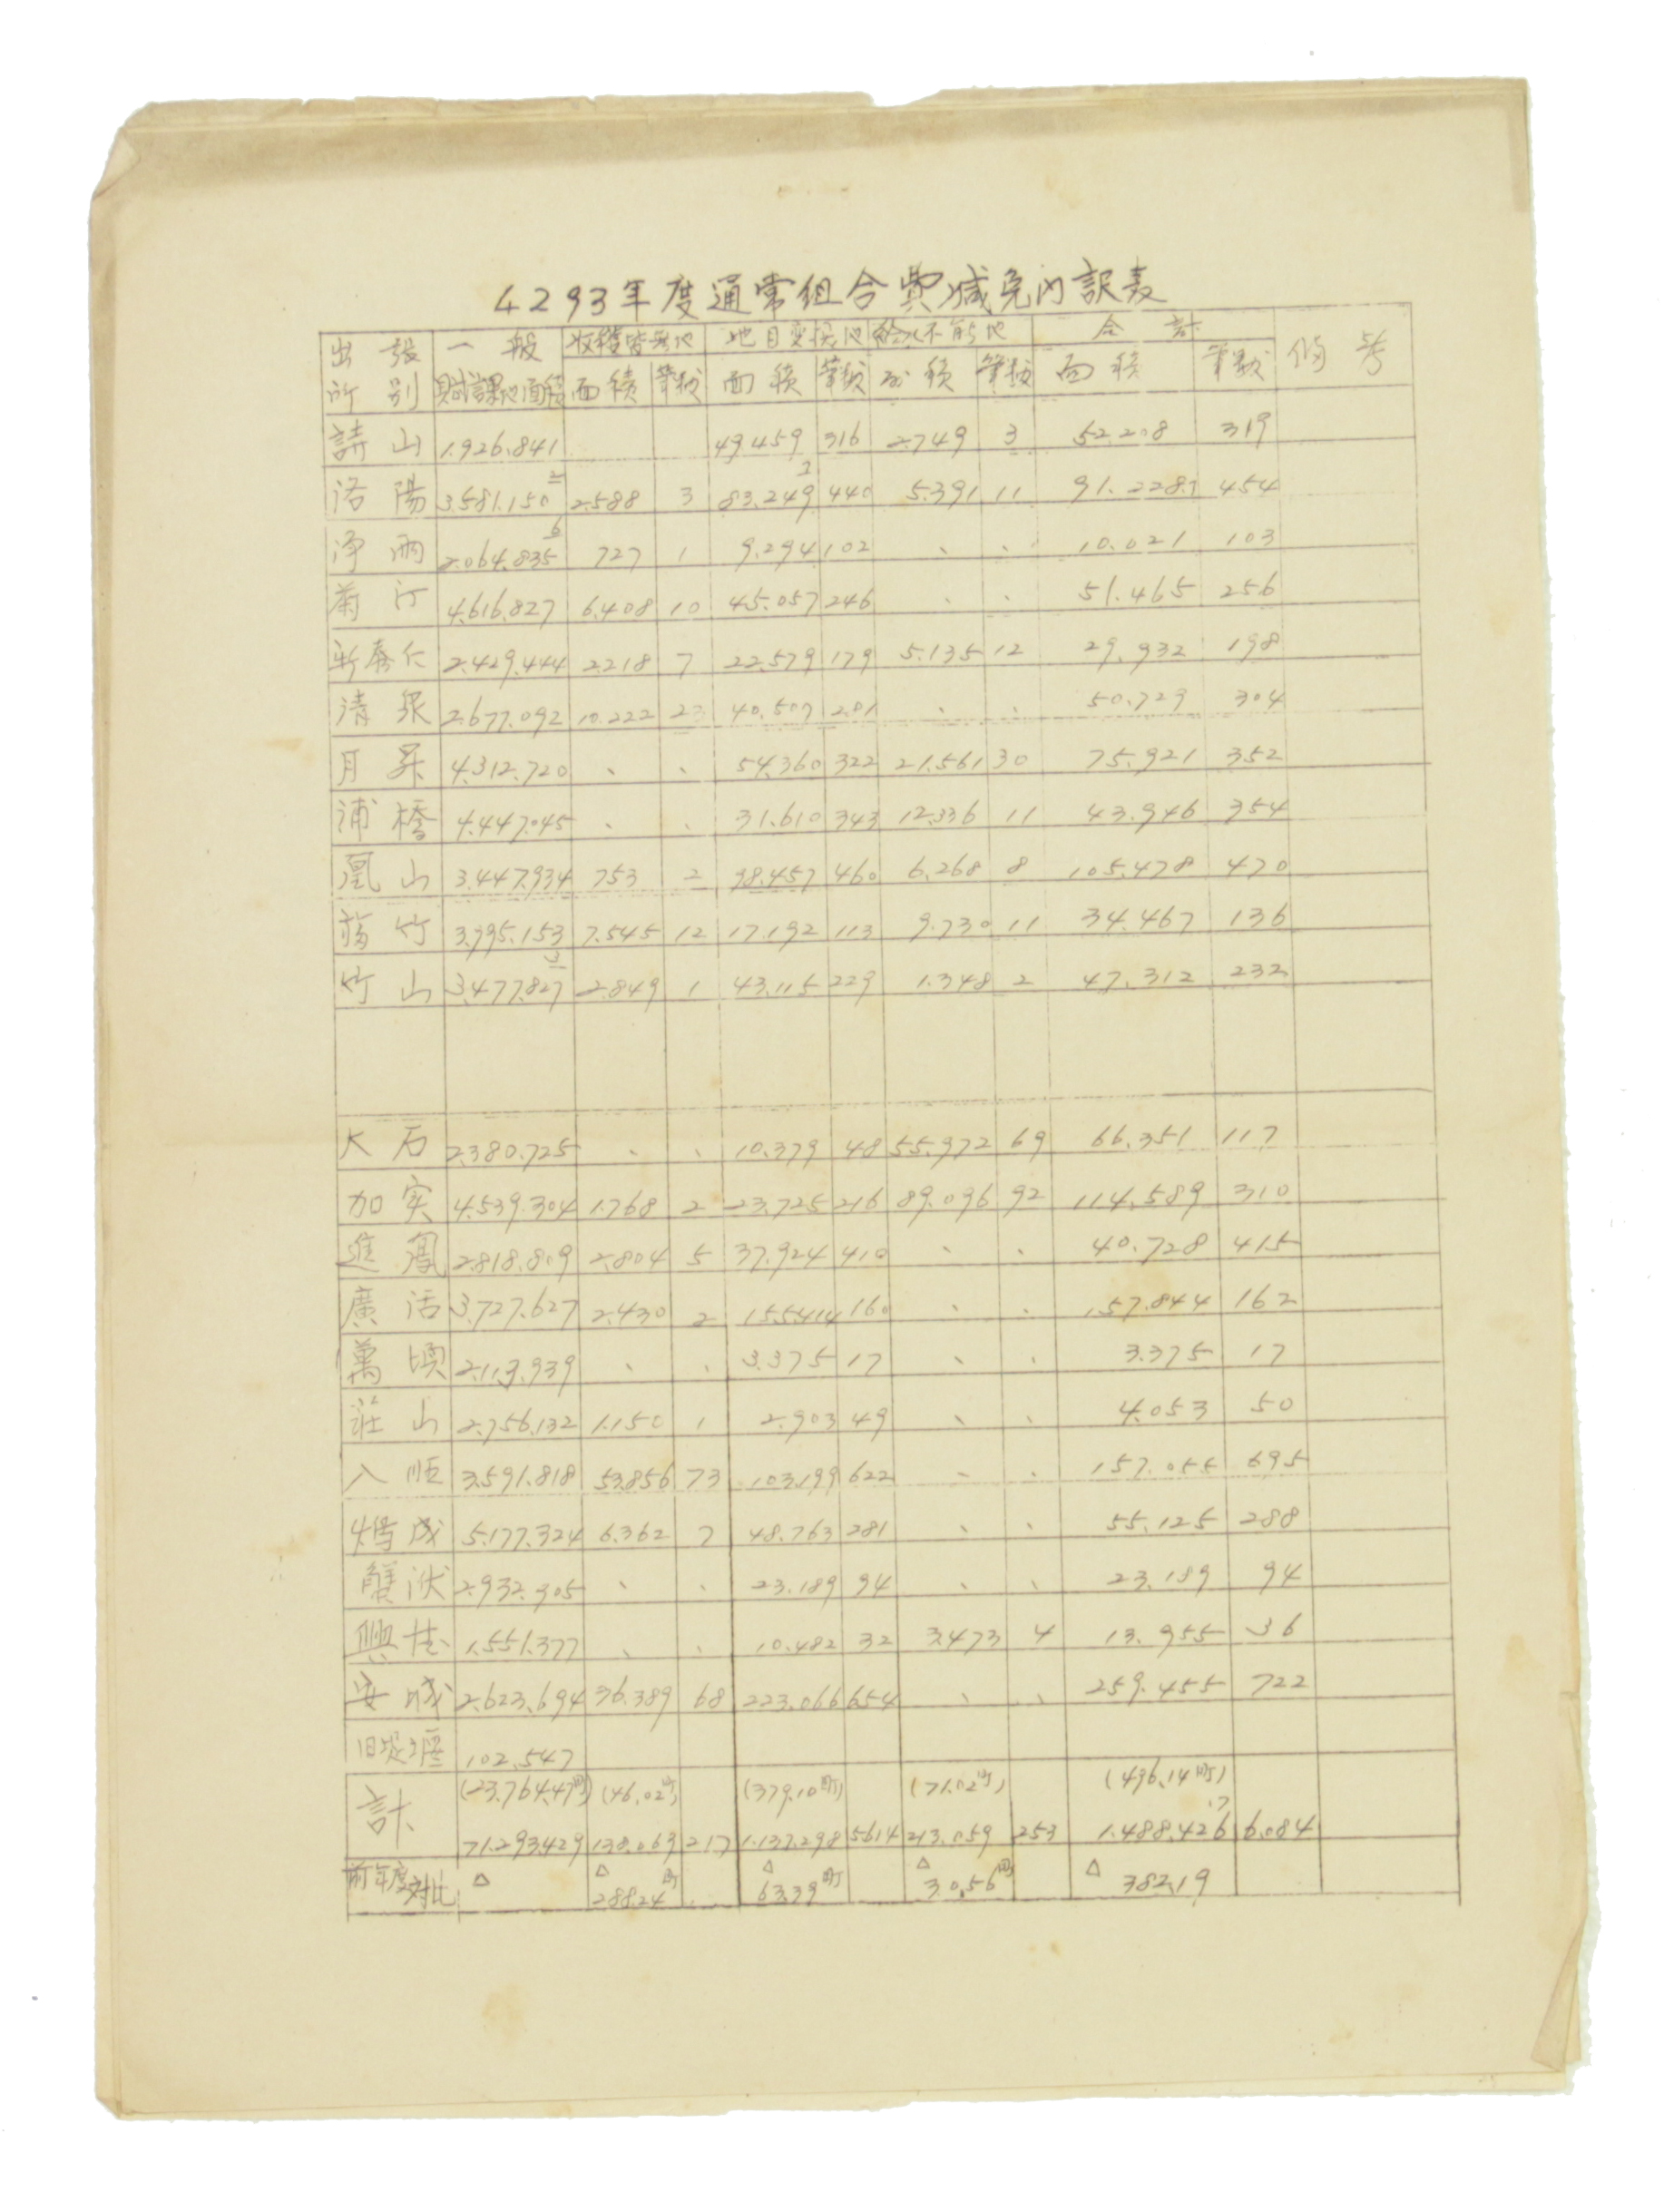 4293年度通常組合費減免內訳表
出張所別 一般賦課地面積 收穫皆無地 地目変換地 給水不能地 合計 俻考
面積 筆数 面積 筆数 面積 筆数 面積 筆数
請山 1.926.841 49.459 316 2.749 3 52.208 319
洛陽 3.581.150 2 2.588 3 83.249 2 440 5.391 11 91.228.7 454
浄雨 2.064.835 6 727 1 9.294 102 、 、 10.021 103
菊汀 4.616.827 6.408 10 45.057 246 、 、 51.465 256
新泰仁 2.429.444 2.218 7 22.579 179 5.135 12 29.932 198
清泉 2.677.092 10.222 23 40.507 281 、 、 50.729 304
月昇 4.312.720 、 、 54.360 322 21.561 30 75.921 352
浦橋 4.447.045 、 、 31.610 343 12.336 11 43.946 354
凰山 3.447.934 753 2 98.457 460 6.268 8 105.478 470
竹 3.995.153 7.545 12 17.192 113 9.730 11 34.467 136
竹山 3.477.827 3 2.849 1 43.115 229 1.348 2 47.312 232
大石 2.380.725 、 、 10.379 48 55.972 69 66.351 117
加実 4.539.304 1.768 2 23.725 216 89.096 92 114.589 310
進鳳 2.818.809 2.804 5 37.924 410 、 、 40.728 415
廣活 3.727.627 2.430 2 155.414 160 、 、 157.844 162
萬頃 2.113.939 、 、 3.375 17 、 、 3.375 17
莊山 2.756.132 1.150 1 2.903 49 、 、 4.053 50
入順 3.591.818 53.856 73 103.199 622 、 、 157.055 695
成 5.177.324 6.362 7 48.763 281 、 、 55.125 288
蟹洑 2.932.905 、 、 23.189 94 、 、 23.189 94
興 1.551.377 、 、 10.482 32 3.473 4 13.955 36
安城 2.623.694 36.389 68 223.066 654 、 、 259.455 722
旧堤堰 102.547
計 (23.764.47町) (46.02町) (379.10町) (71.02町) (496.14町)
71.293.429 138.069 217 1.137.298 5614 213.059 253 1.488.426.7 6.084
前年度対比 △ △288.24町 △63.39町 △30.56町 △382.19